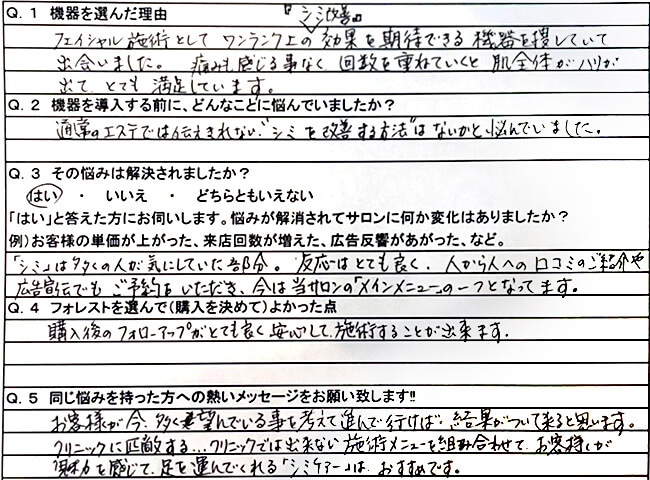 Q. 1 機器を選んだ理由
『シミ改善』
フェイシャル施術としてワンランク上の効果を期待できる機器を探していて
出会いました。痛みも感じる事なく回数を重ねていくと肌全体がハリが
出て、とても満足しています。
Q. 2 機器を導入する前に、どんなことに悩んでいましたか?
通常のエステでは伝えきれない"シミを改善する方法"はないかと悩んでいました。
Q. 3 その悩みは解決されましたか?
はい ・ いいえ ・ どちらともいえない
「はい」と答えた方にお伺いします。悩みが解消されてサロンに何か変化はありましたか?
例)お客様の単価が上がった、来店回数が増えた、広告反響があがった、など。
「シミ」は多くの人が気にしていた部分。反応はとても良く、人から人への口コミのご紹介や
広告宣伝でもご予約をいただき、今は当サロンの「メインメニュー」の一つとなってます。
Q. 4 フォレストを選んで(購入を決めて)よかった点
購入後のフォローアップがとても良く安心して、施術することが出来ます。
Q. 5 同じ悩みを持った方への熱いメッセージをお願い致します!!
お客様が今、多く希望んでいる事を考えて進んで行けば、結果がついて来ると思います。
クリニックに匹敵する...クリニックでは出来ない施術メニューを組み合わせて、お客様が
魅力を感じて、足を運んでくれる「シミケアー」は、おすすめです。